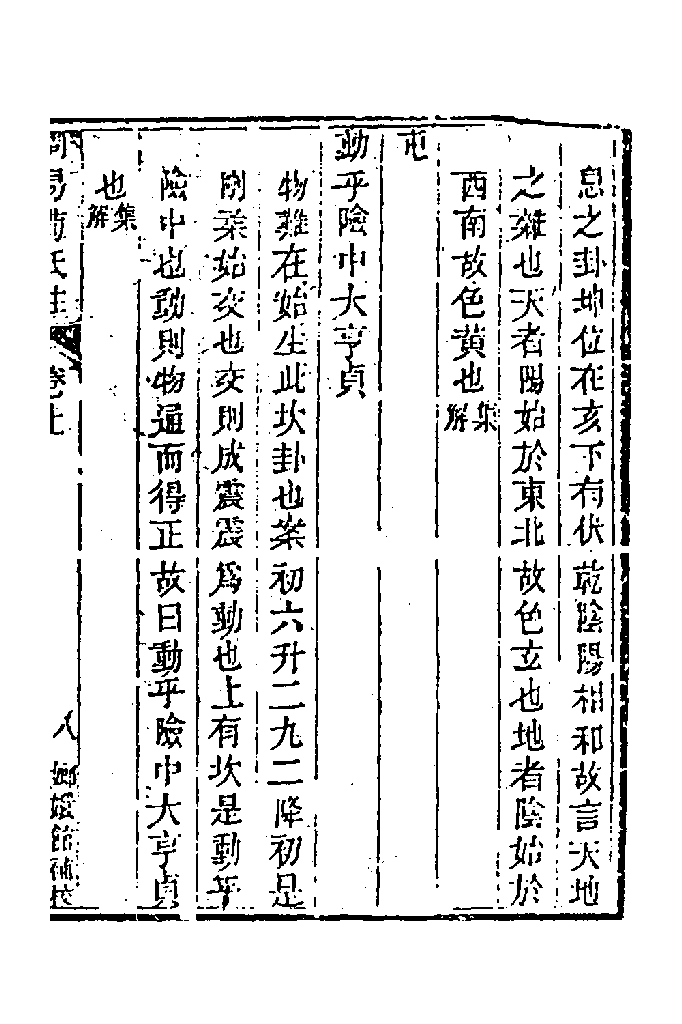 息之卦坤位在亥下有伏乾陰陽相和故言天地
之雜也天者陽始於東北故色玄也地者陰始於
西南故色黃也集解
屯
動乎險中大亨貞
物難在始生此坎卦也案初六升二九二降初是
剛柔始交也交則成震震爲動也上有坎是動乎
險中也動則物通而得正故曰動乎險中大亨貞
也集解
周易荀氏注 卷上 八 嫏嬛館補校